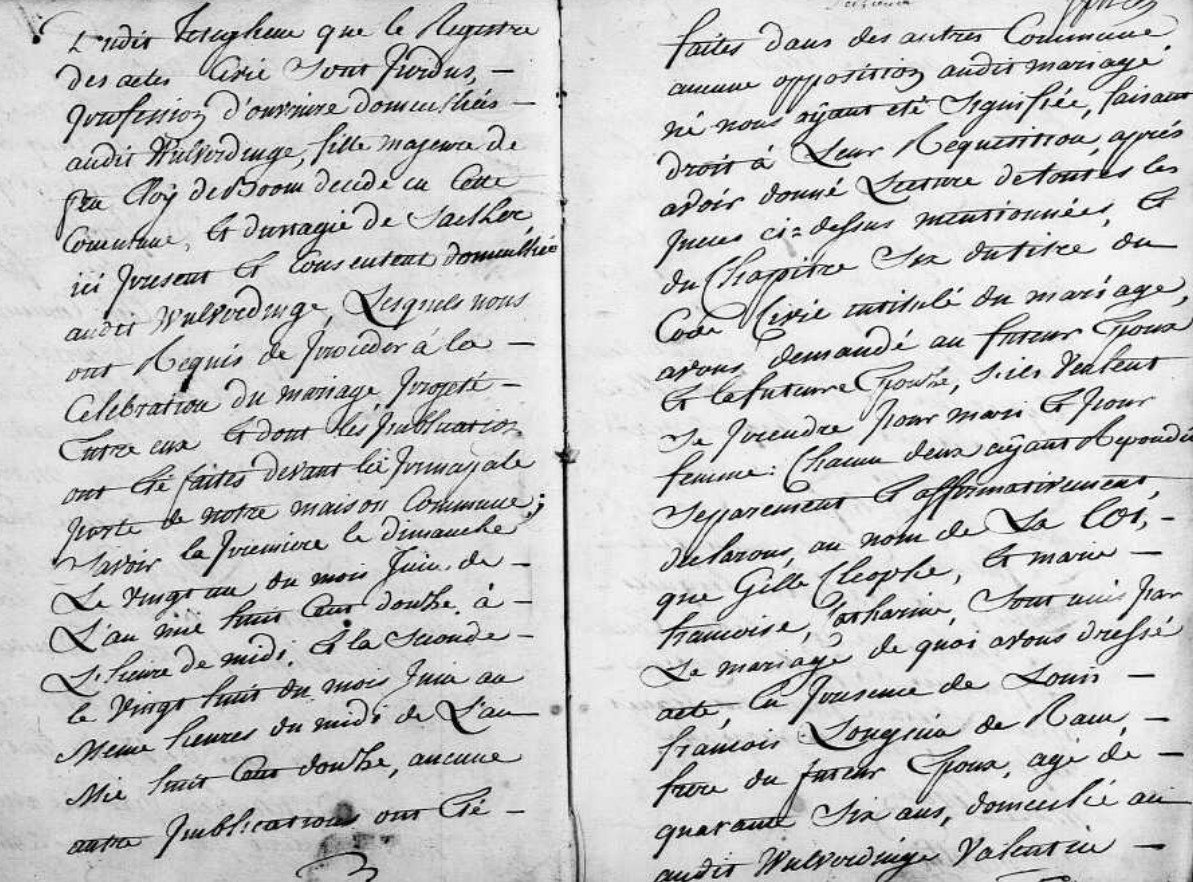 Ledit Iseghem que le Registre
des actes Civie Sont Perdus, —
proffession d'ouvriere domiciliés —
audit Wulverdinge, fille majeure de
feu Eloÿ de Boom decidé en Cette
Commune, et du vagié de Saelher
ici present et Consentent domiciliée
audit Wulverdinge, Lesquels nous
ont Requis de proceder à la —
Celebration du mariage projeté —
Entre eux et dont les publication
ont été faites devant la principale
porte de notre maison Commune;
Savoir la premiere le dimanche
Le vingt un du mois Juin de —
L'an mie huit Cent douze, à —
L'heure de midi, et la Seconde —
le Vingt huit du mois Juin au
Meme heures du midi de L'an —
Mie huit Cent douze, aucune
autre publications ont été —
faites dans des autres Commune
aucune opposition audit mariage
né nous aÿant été Signifiée, faisant
droit à Leur Requisition, aprés
avoir donné Lecture de toutes les
pieces ci=dessus mentionnées, et
du Chapitre Six du titre du
Code Civie intitulé du mariage,
avons demandé au futeur Epoux
et la future Epouse, S'ils Veulent
Se prendre pour mari et pour
femme: Chacun deux aÿant Repondu
Separement et affirmativement,
declarons, au nom de La Loi, —
que Gille Cleophe, et marie —
francoise, Catharine, Sont unis par
Le mariage de quoi avons dressé
acte, en presence de Louis —
francois Longhin de Raeu —
frere du futeur Epoux, agé de —
quarante Six ans, domicilié au
audit Wulverdinge Valentin —